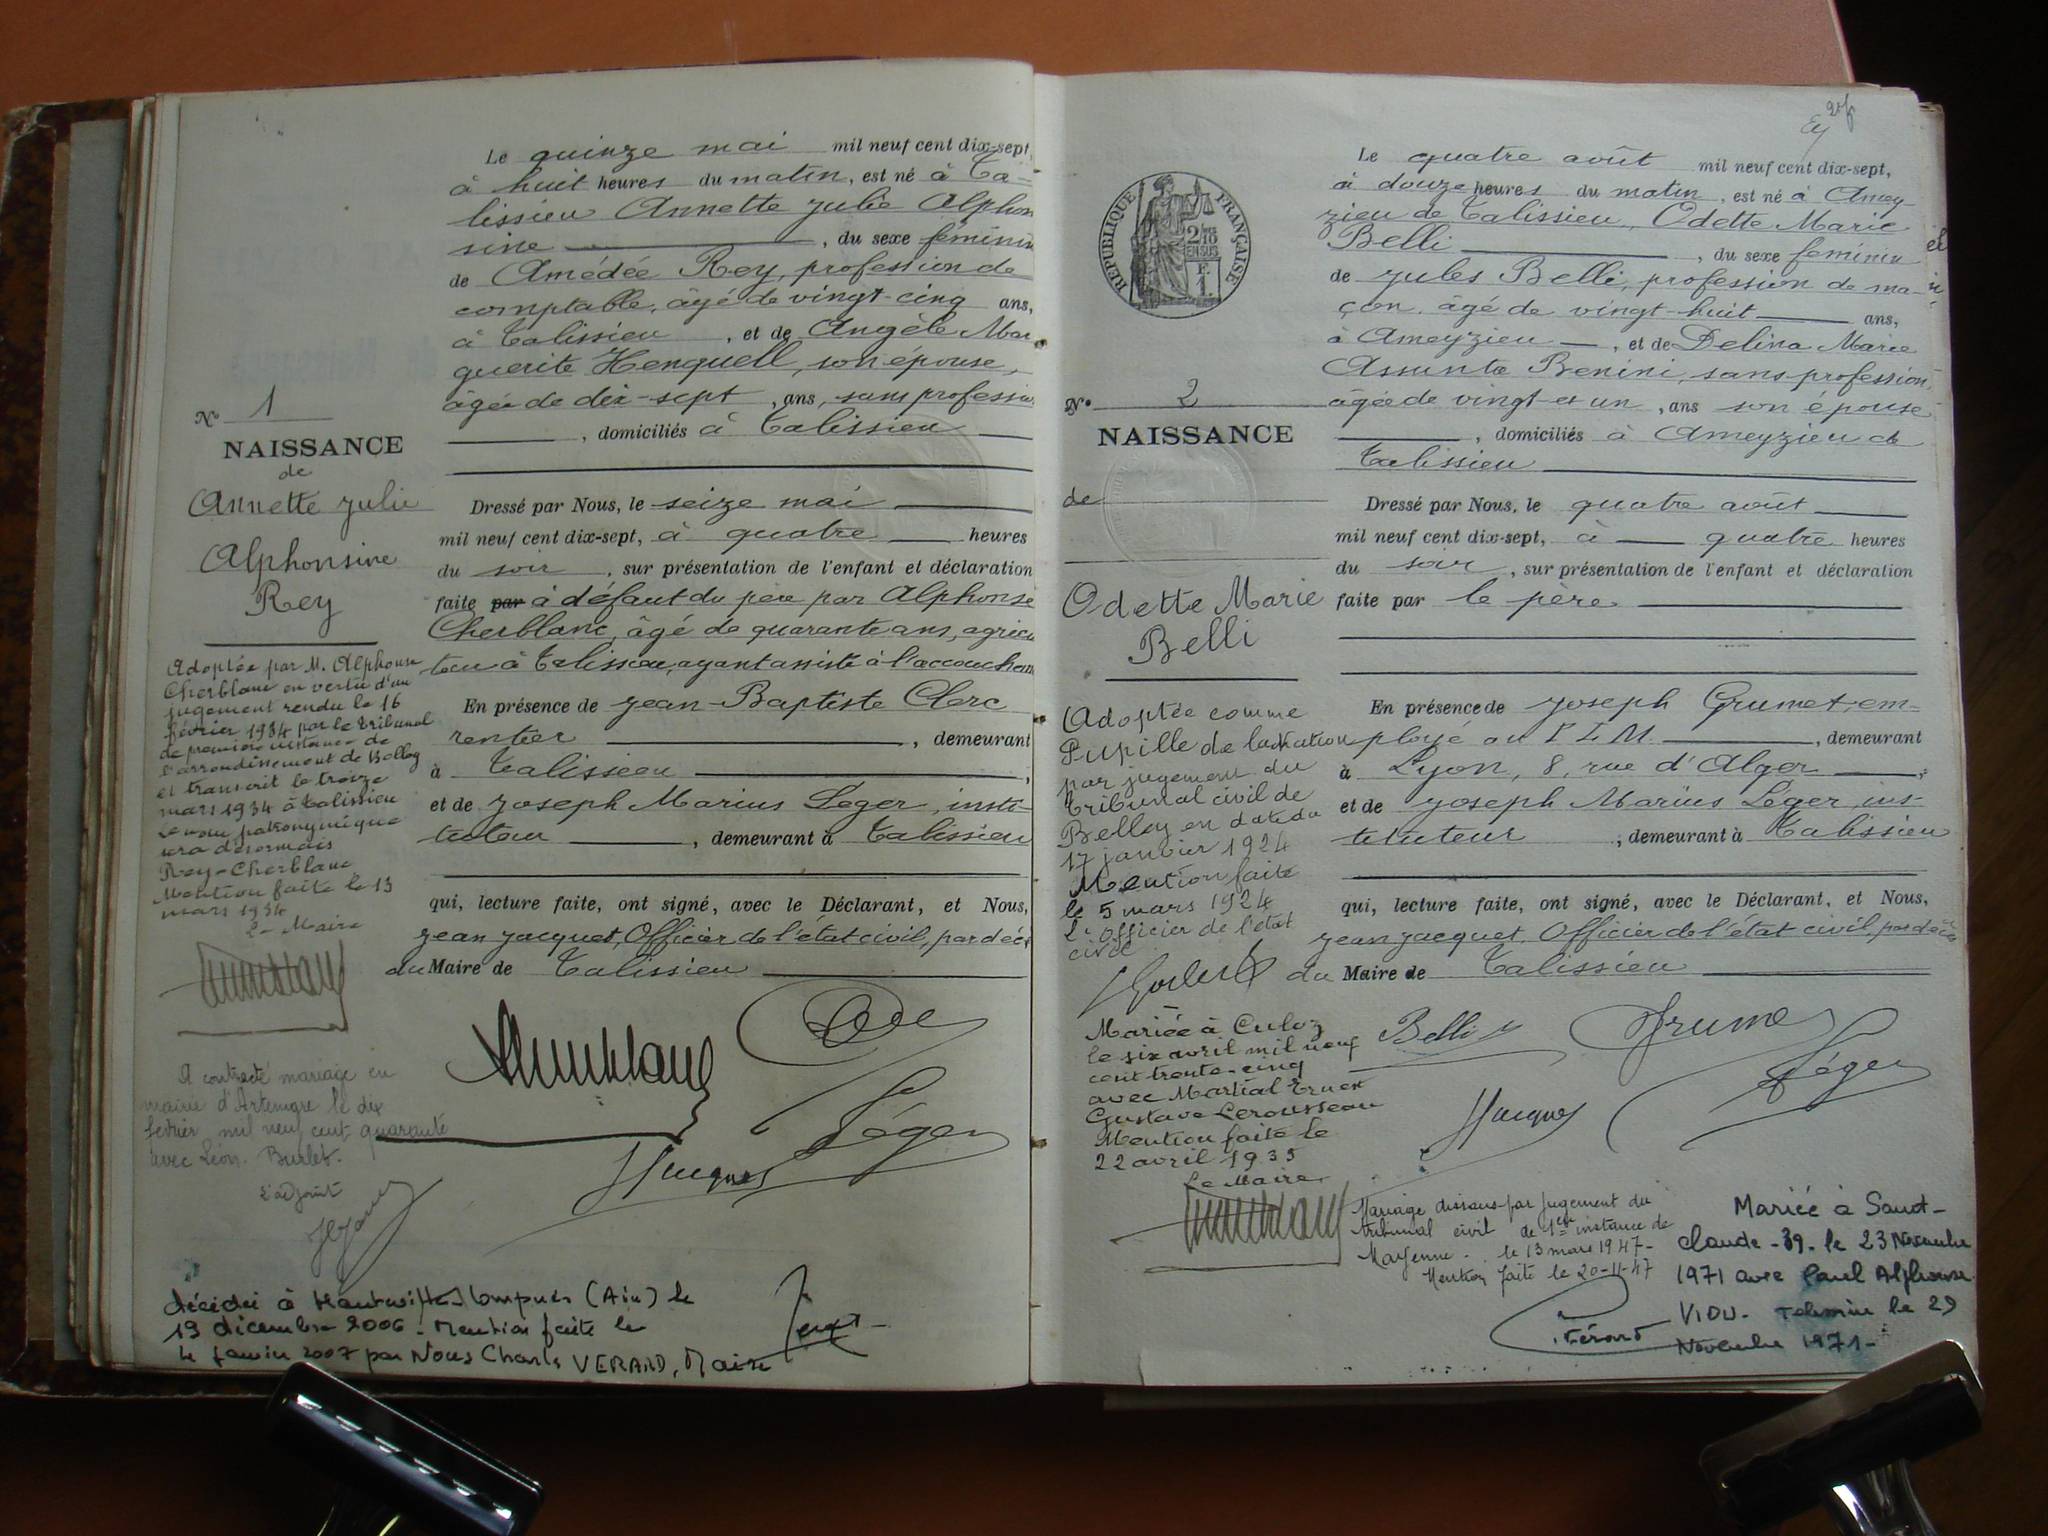 Le quinze mai mil neuf cent dix-sept,
à huit heures du matin, est né à Ta-
lissieu Annette Julie Alphon
sine , du sexe féminin
de Amédée Rey, profession de
comptable, âgé de vingt-cinq ans,
à Talissieu , et de Angèle Mar
guerite Henquell, son épouse,
âgée de dix-sept , ans, sans profession
, domiciliés à Talissieu
N° 1
NAISSANCE
de
Annette Julie
Alphonsine
Rey
Dressé par Nous, le seize mai
mil neuf cent dix-sept, à quatre heures
du soir , sur présentation de l'enfant et déclaration
faite par à défaut du père par Alphonse
Cherblanc, âgé de quarante ans, agricu
teur à Talissieu, ayant assisté à l'accouchem
En présence de Jean-Baptiste Clerc
rentier , demeurant
à Talissieu ,
et de Joseph Marius Léger, insti-
tuteur , demeurant à Talissieu
qui, lecture faite, ont signé, avec le Déclarant, et Nous,
Jean Jacquet, Officier de l'état civil, par déc
du Maire de Talissieu
Adoptée par M. Alphonse
Cherblanc en vertu d'un
jugement rendu le 16
février 1934 par le Tribunal
de première instance de
l'arrondissement de Belley
et transcrit le treize
mars 1934 à Talissieu
Le nom patronymique
sera désormais
Rey-Cherblanc
Mention faite le 13
mars 1934
Le Maire
A contracté mariage en
mairie d'Artemare le dix
février mil neuf cent quarante
avec Léon Burlet.
L'adjoint
Léger
Jacquet
décédée à Hauteville-Lompnes (Ain) le
19 décembre 2006 - Mention faite le
4 janvier 2007 par Nous Charles VERARD, Maire
Le quatre août mil neuf cent dix-sept,
à douze heures du matin, est né à Amey-
zieu de Talissieu, Odette Marie
Belli , du sexe féminin
de Jules Belli, profession de ma-
çon, âgé de vingt-huit ans,
à Ameyzieu , et de Delina Marie
Assunta Benini, sans profession,
âgée de vingt et un , ans son épouse
, domiciliés à Ameyzieu de
Talissieu
RÉPUBLIQUE FRANÇAISE
2/10
EN SUS
F.
1.
N° 2
NAISSANCE
de
Odette Marie
Belli
Dressé par Nous, le quatre août
mil neuf cent dix-sept, à quatre heures
du soir , sur présentation de l'enfant et déclaration
faite par le père
En présence de Joseph Grumet, em-
ployé au P.L.M. , demeurant
à Lyon, 8, rue d'Alger ,
et de Joseph Marius Léger, ins-
tituteur , demeurant à Talissieu
qui, lecture faite, ont signé, avec le Déclarant, et Nous,
Jean Jacquet, Officier de l'état civil, par déc
du Maire de Talissieu
Adoptée comme
Pupille de la Nation
par jugement du
Tribunal civil de
Belley en date du
17 janvier 1924
Mention faite
le 5 mars 1924
L'officier de l'état
civil
Belli
Grumet
Léger
Jacquet
Mariée à Culoz
le six avril mil neuf
cent trente-cinq
avec Martial Ernest
Gustave Lerousseau
Mention faite le
22 avril 1935
Le Maire
Mariage dissous par jugement du
tribunal civil de 1ère instance de
Mayenne - le 13 mars 1947-
Mention faite le 20-11-47
Mariée à Saint-
Claude -39- le 23 Novembre
1971 avec Paul Alphonse
VIOU- le 29
Novembre 1971-